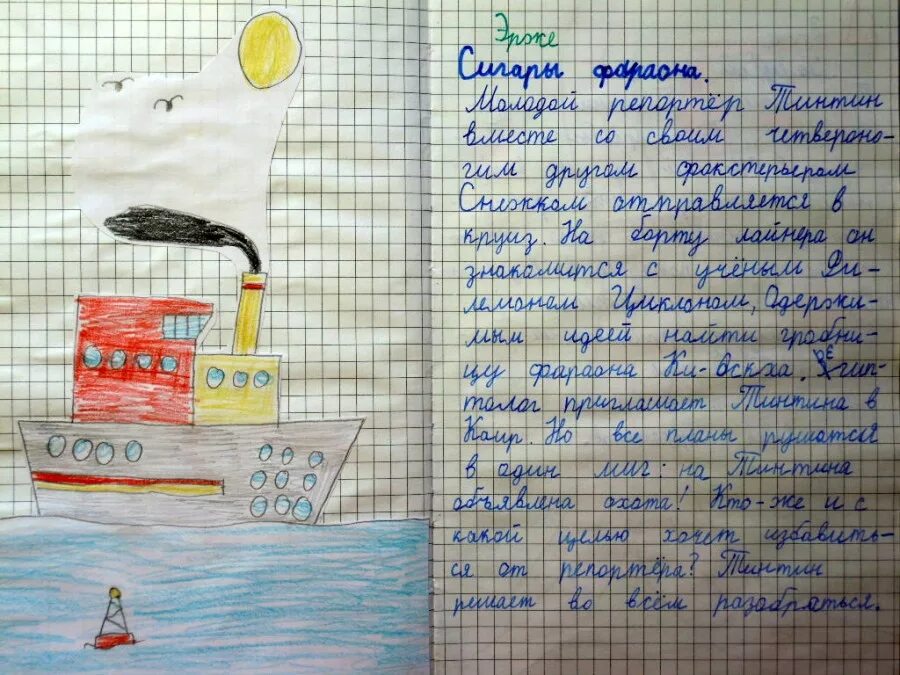 Эрже
Сигары фараона.
Молодой репортёр Тинтин
вместе со своим четвероно-
гим другом фокстерьером
Снежком отправляется в
круиз. На борту лайнера он
знакомится с учёным Фи-
лемоном Циклоном, Одержи-
мым идеей найти гробни-
цу фараона Ки-Оскха. Егип-
толог приглашает Тинтина в
Каир. Но все планы рушатся
в один миг: на Тинтина
объявлена охота! Кто-же и с
какой целью хочет избавить-
ся от репортёра? Тинтин
решает во всём разобраться.